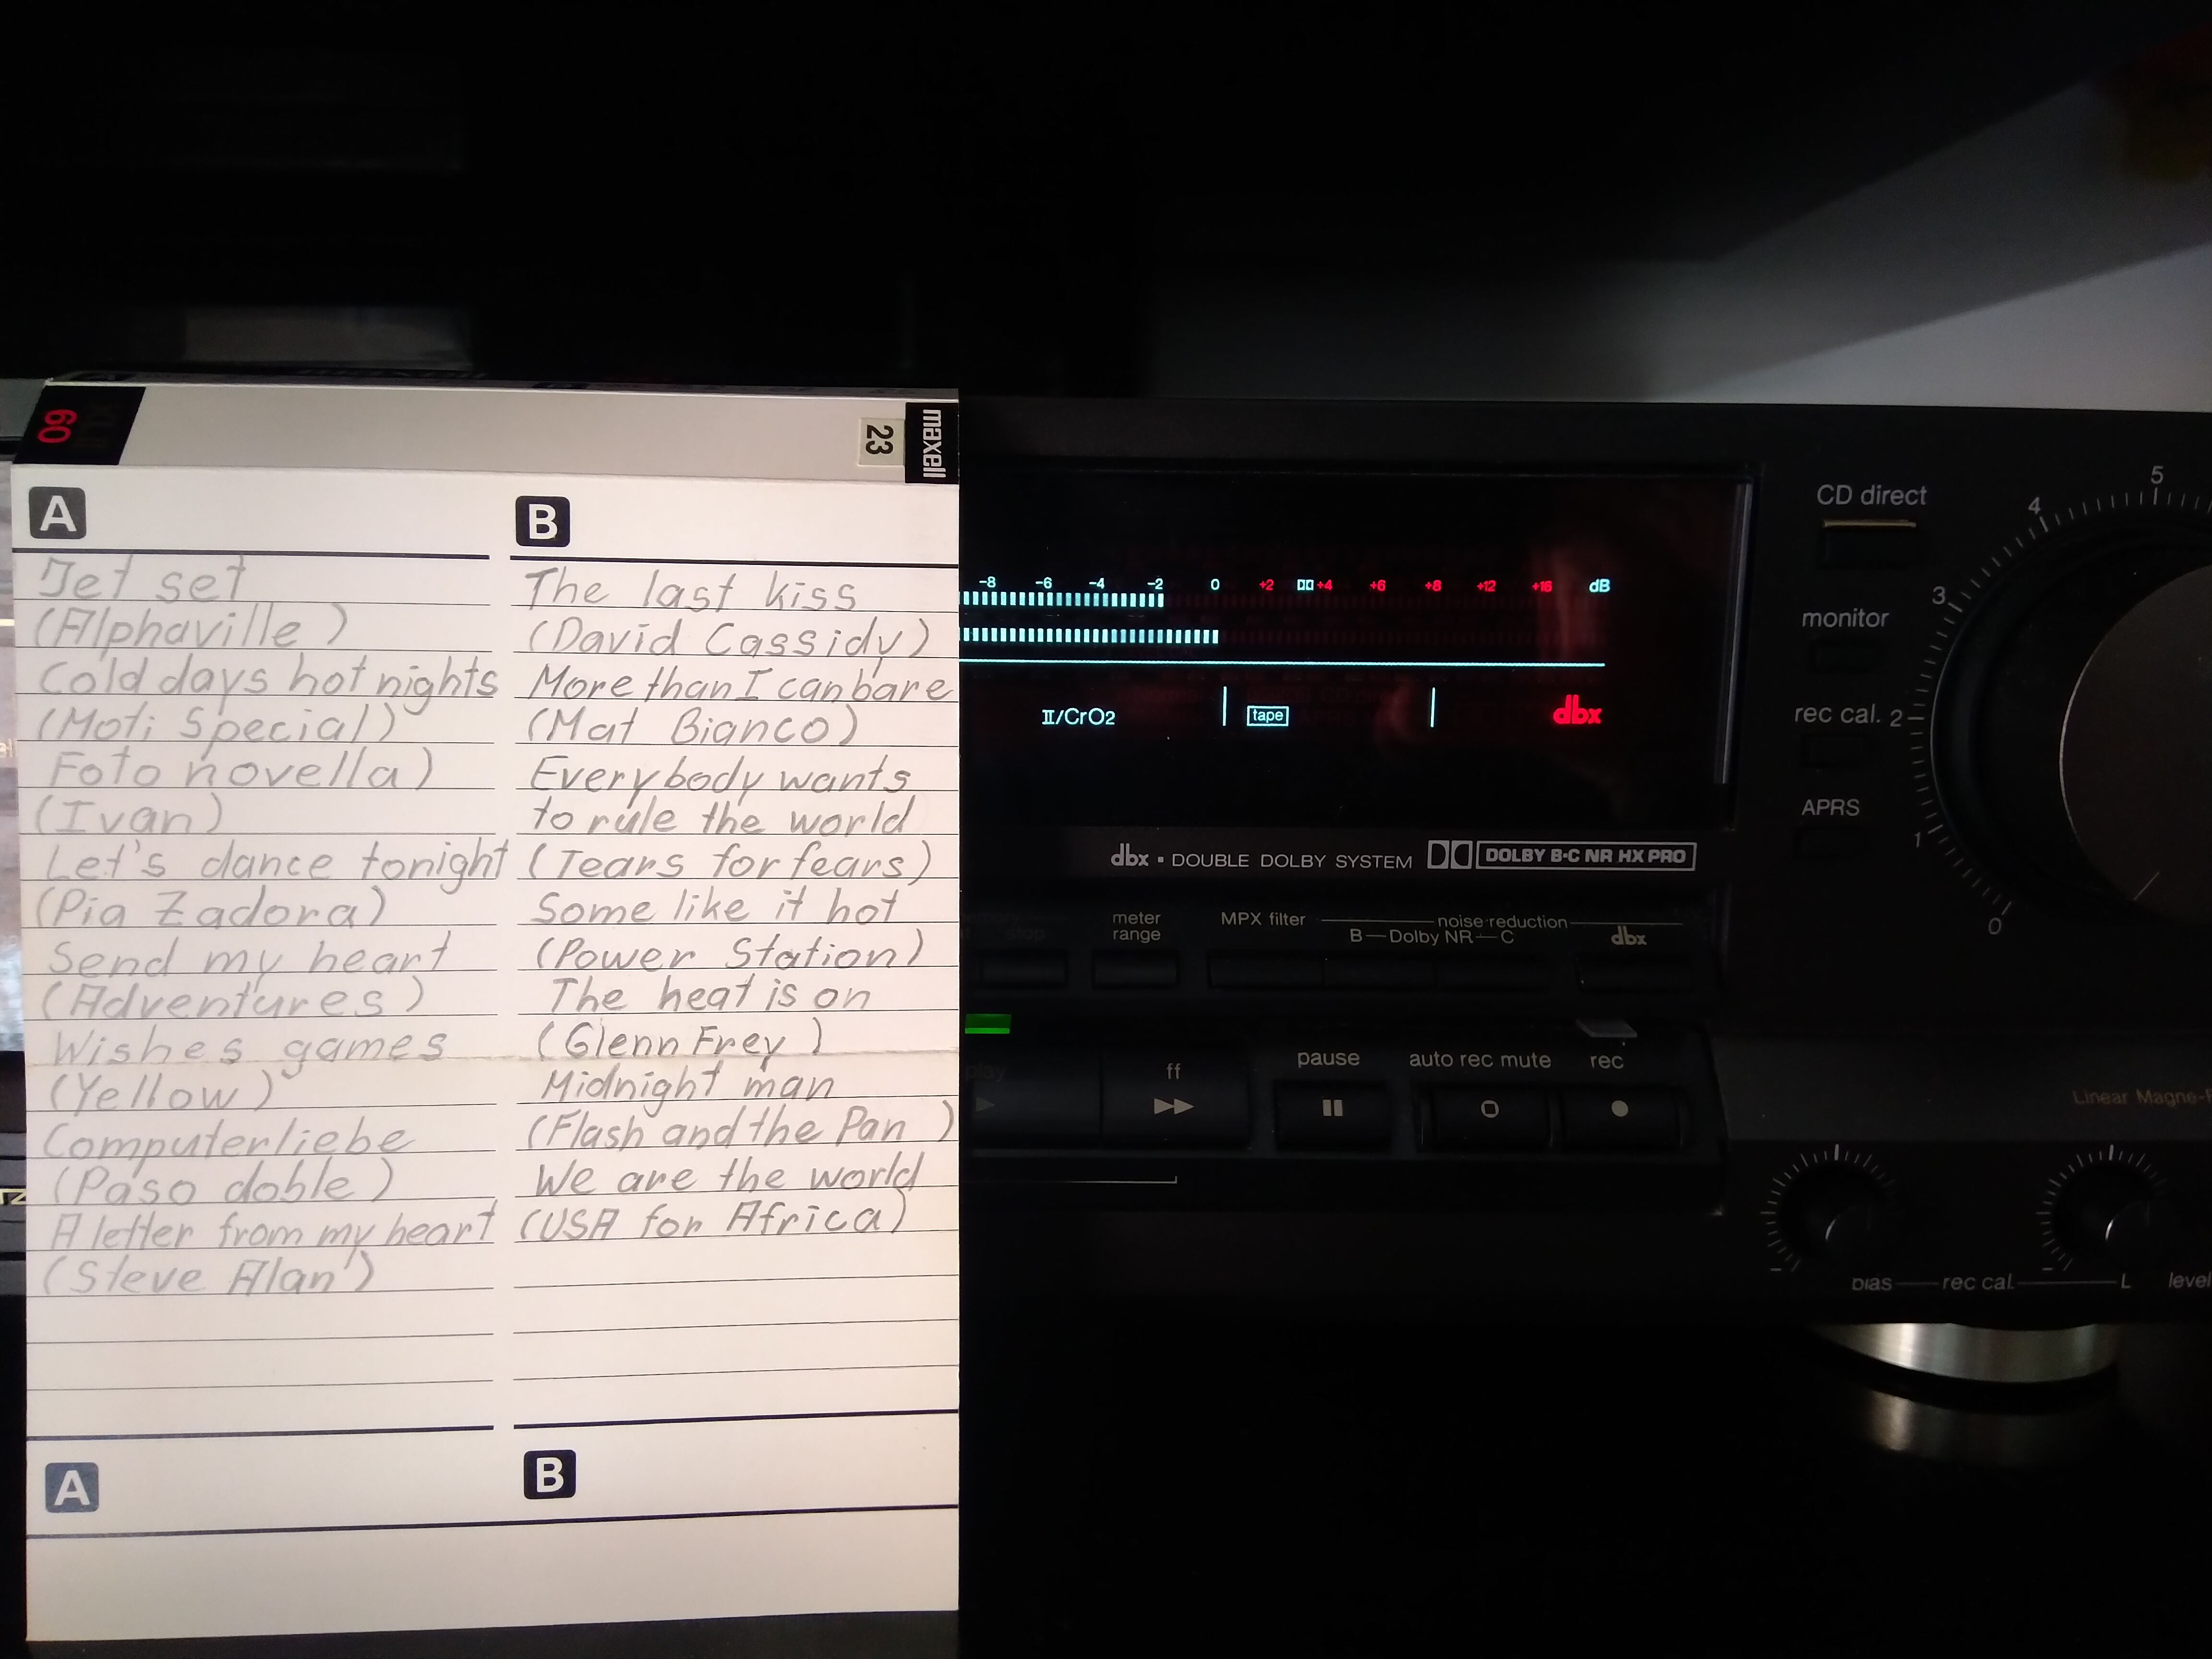 60
23
maxell
A
Jet set
(Alphaville)
Cold days hot nights
(Moti Special)
Foto novella)
(Ivan)
Let's dance tonight
(Pia Zadora)
Send my heart
(Adventures)
Wishes games
(Yellow)
Computerliebe
(Paso doble)
A letter from my heart
(Steve Alan)
A
B
The last kiss
(David Cassidy)
More than I can bare
(Mat Bianco)
Everybody wants
to rule the world
(Tears for fears)
Some like it hot
(Power Station)
The heat is on
(Glenn Frey)
Midnight man
(Flash and the Pan)
We are the world
(USA for Africa)
B
-8 -6 -4 -2 0 +2 +4 +6 +8 +12 +16 dB
II/CrO2 tape dbx
dbx • DOUBLE DOLBY SYSTEM DOLBY B•C NR HX PRO
stop
meter range
MPX filter
noise reduction
B — Dolby NR — C
dbx
play
ff
pause
auto rec mute
rec
CD direct
monitor
rec cal.
APRS
5
4
3
2
1
0
Linear Magne-F
bias — rec cal. — L level